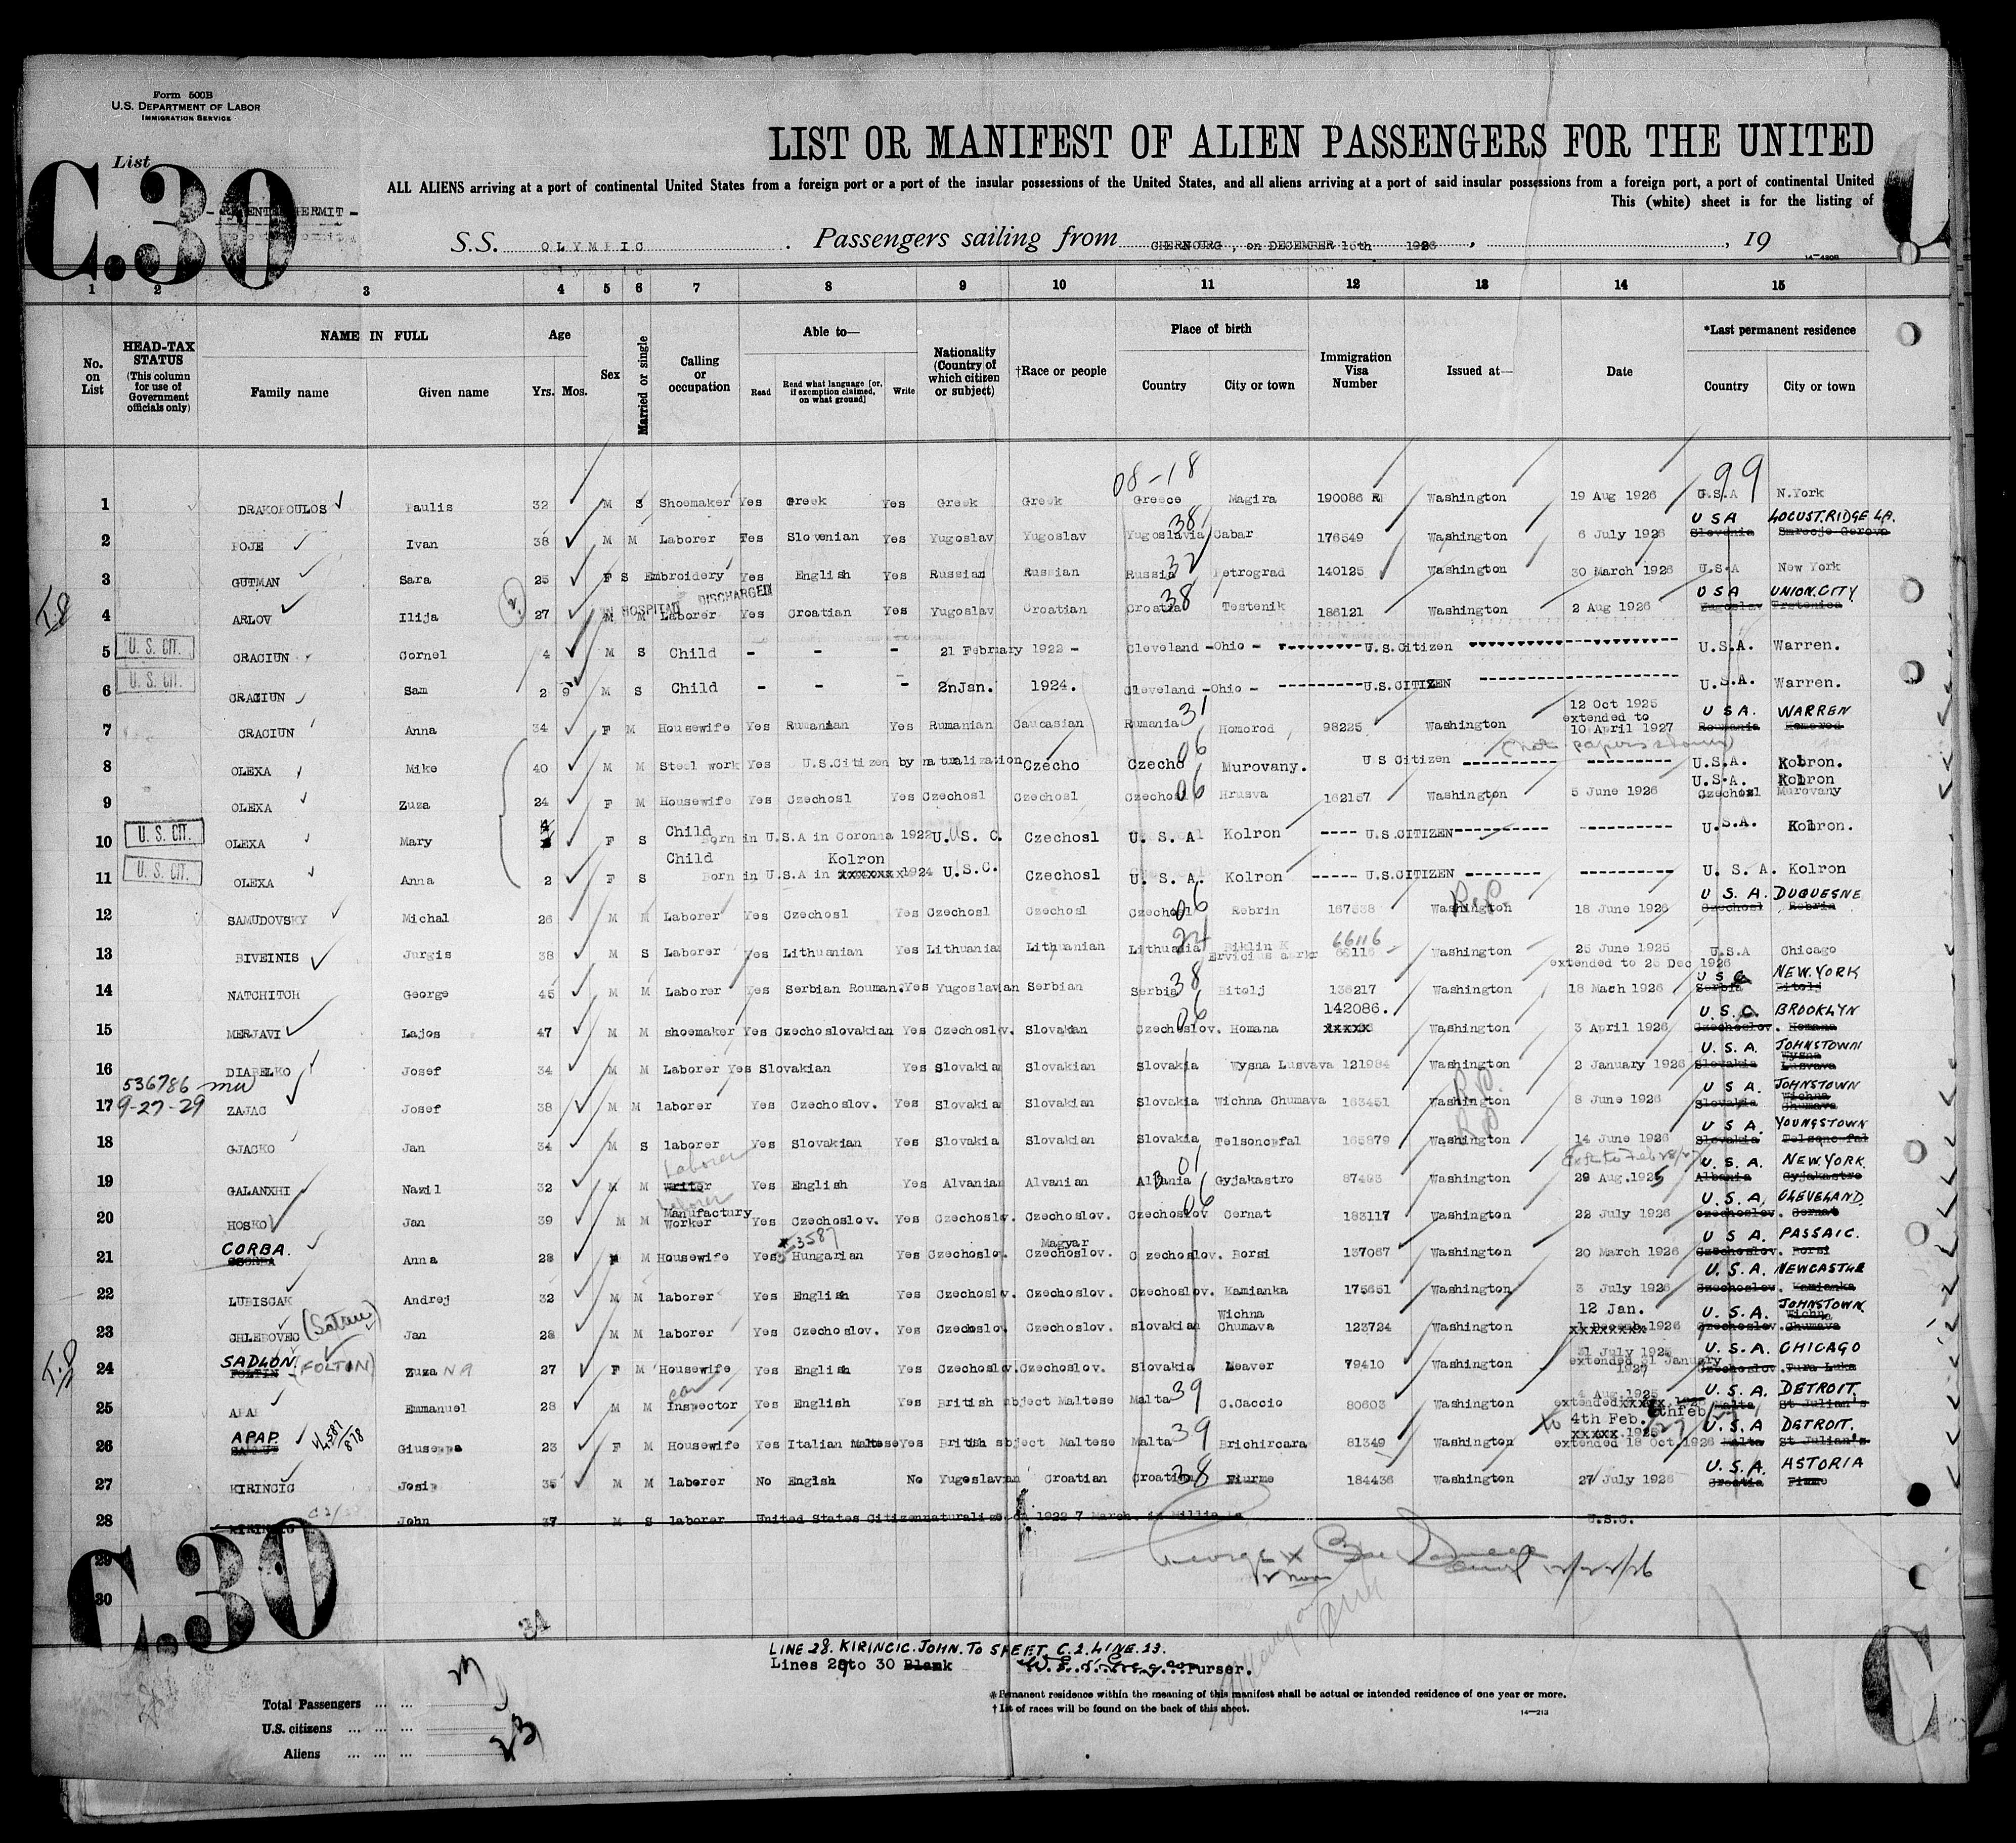 Form 500B
U.S. DEPARTMENT OF LABOR
IMMIGRATION SERVICE
List
C.30
LIST OR MANIFEST OF ALIEN PASSENGERS FOR THE UNITED
ALL ALIENS arriving at a port of continental United States from a foreign port or a port of the insular possessions of the United States, and all aliens arriving at a port of said insular possessions from a foreign port, a port of continental United
This (white) sheet is for the listing of
S.S. OLYMPIC. Passengers sailing from CHERBOURG, on DECEMBER 15th 1926, , 19
14—420B
1 2 3 4 5 6 7 8 9 10 11 12 13 14 15
No. on List
HEAD-TAX STATUS (This column for use of Government officials only)
NAME IN FULL Family name Given name
Age Yrs. Mos.
Sex
Married or single
Calling or occupation
Able to— Read Read what language [or, if exemption claimed, on what ground] Write
Nationality (Country of which citizen or subject)
†Race or people
Place of birth Country City or town
Immigration Visa Number
Issued at—
Date
*Last permanent residence Country City or town
08-18 99
1 DRAKOPOULOS Paulis 32 M S Shoemaker Yes Greek Yes Greek Greek Greece Magira 190086 Washington 19 Aug 1926 U.S.A N.York
2 POJE Ivan 38 M M Laborer Yes Slovenian Yes Yugoslav Yugoslav Yugoslavia 38 Cabar 176549 Washington 6 July 1926 U S A LOCUST.RIDGE LA. Slovenia Smrecje Gerovo
3 GUTMAN Sara 25 F S Embroidery Yes English Yes Russian Russian Russia 37 Petrograd 140125 Washington 30 March 1926 U.S.A New York
IN HOSPITAL DISCHARGED
4 ARLOV Ilija 27 M M Laborer Yes Croatian Yes Yugoslav Croatian Croatia 38 Testenik 186121 Washington 2 Aug 1926 U S A UNION.CITY Yugoslav Trstenica
5 U. S. CIT. CRACIUN Cornel 4 M S Child - - - 21 February 1922 - Cleveland -Ohio - U.S.Citizen U.S.A. Warren.
6 U. S. CIT. CRACIUN Sam 2 9 M S Child - - - 2nJan. 1924. Cleveland -Ohio - U.S.CITIZEN U.S.A. Warren.
7 CRACIUN Anna 34 F M Housewife Yes Rumanian Yes Rumanian Caucasian Rumania 31 Homorod 98225 Washington 12 Oct 1925 extended to 10 April 1927 U S A. WARREN Roumania Homorod
8 OLEXA Mike 40 M M Steel work Yes U.S.Citizen by naturalization Czecho Czecho 06 Murovany. U S Citizen U.S.A. Kolron.
9 OLEXA Zuza 24 F M Housewife Yes Czechosl Yes Czechosl Czechosl Czechosl 06 Hrusva 162157 Washington 5 June 1926 U.S.A. Kolron Czechosl Murovany
10 U. S. CIT. OLEXA Mary 4 F S Child Born in U.S.A in Coronna 1922 U.S. C. Czechosl U. S. A Kolron U.S.CITIZEN U.S.A. Kolron.
11 U. S. CIT. OLEXA Anna 2 F S Child Born in U.S.A in Kolron xxxxxxx 1924 U.S.C. Czechosl U. S. A. Kolron U.S.CITIZEN U. S. A. Kolron
12 SAMUDOVSKY Michal 26 M M Laborer Yes Czechosl Yes Czechosl Czechosl Czechosl 06 Rebrin 167538 Washington 18 June 1926 U. S. A. DUQUESNE Czechosl Rebrin
13 BIVEINIS Jurgis 38 M S Laborer Yes Lithuanian Yes Lithuanian Lithuanian Lithuania 24 66116 Washington 25 June 1925 extended to 25 Dec 1926 U.S.A Chicago
14 NATCHITCH George 45 M M Laborer Yes Serbian Rouman. Yes Yugoslavian Serbian Serbia 38 Bitolj 136217 Washington 18 Mach 1926 NEW.YORK Serbia Bitolj
15 MERJAVI Lajos 47 M M shoemaker Yes Czechoslovakian Yes Czechoslov. Slovakian Czechoslov. 06 Homana 142086. xxxxx Washington 3 April 1926 BROOKLYN Czechoslov. Homana
16 DIABELKO Josef 34 M M Laborer Yes Slovakian Yes Slovakia Slovakian Slovakia Wysna Lusvava 121984 Washington 2 January 1926 U. S. A. JOHNSTOWN Slovakia Wysna Lusvava
536786 9-27-29
17 ZAJAC Josef 38 M M laborer Yes Czechoslov. Yes Slovakia Slovakian Slovakia Wichna Chumava 163451 Washington 8 June 1926 U S A. JOHNSTOWN Slovakia Wichna Chumava
18 GJACKO Jan 34 M S laborer Yes Slovakian Yes Slovakia Slovakian Slovakia 165879 Washington 14 June 1926 U S A. YOUNGSTOWN Slovakia
19 GALANXHI Nazil 32 M M Laborer writer Yes English Yes Alvanian Alvanian Albania 01 Gyjakastro Washington 29 Aug.1925 U. S. A. NEW.YORK. Albania Gyjakastro
20 HOSKO Jan 39 M M Laborer Manufactury Worker Yes Czechoslov. Yes Czechoslv. Czechoslov. Czechoslov 06 Cernat 183117 Washington 22 July 1926 U. S. A. CLEVELAND. Czechoslov. Cernat
21 CORBA. Anna 28 M Housewife Yes Hungarian Yes Czechoslov. Magyar Czechoslov. Czechoslov. Borsi 137067 Washington 20 March 1926 U S A. PASSAIC. Czechoslov. Borsi
22 LUBISCAK Andrej 32 M M laborer Yes English Yes Czechoslv. Czechoslov. Czechoslov. Kamianka 175651 Washington 3 July 1926 U. S. A. NEWCASTLE Czechoslov. Kamianka
23 CHLEBOVEC Jan 28 M M laborer Yes Czechoslov. Yes Czechoslov. Czechoslov. slovakian Wichna Chumava 123724 Washington 12 Jan. 1926 U. S. A. JOHNSTOWN. Czechoslov. Wichna Chumava
24 SADLON. FOLTIN (FOLTIN) Zuza 27 F M Housewife Yes English Yes Czechoslov. Czechoslov. Slovakia 79410 Washington 31 July 1925 extended 31 January 1927 U. S. A. CHICAGO Czechoslov. Tura Luka
25 APAP Emmanuel 28 M M car Inspector Yes English Yes British object Maltese Malta 39 C.Caccio 80603 Washington 4 Aug.1925 extended U. S. A. DETROIT. Malta St Julian's
26 APAP. Giuseppa 23 F M Housewife Yes Italian Maltese Yes British object Maltese Malta 39 Brichircara 81349 Washington to 4th Feb. xxxxx.1925 extended 18 Oct.1926 U. S. A DETROIT. Malta St Julian's
27 KIRINCIC Josip 35 M M laborer No Engish No Yugoslavian Croatian Croatian 38 Fiurme 184436 Washington 27 July 1926 U. S. A. ASTORIA Croatia Fiume
28 KIRINCIC John 37 M S laborer United States Citizen naturalised 1922 7 March. U.S.C.
29
30
C.30
34
12/22/26
LINE 28. KIRINCIC. JOHN. TO SHEET. C.2. LINE. 23.
Lines 29 to 30 Blank
Purser.
Total Passengers
U.S. citizens
Aliens
* Permanent residence within the meaning of this manifest shall be actual or intended residence of one year or more.
† List of races will be found on the back of this sheet.
14—213